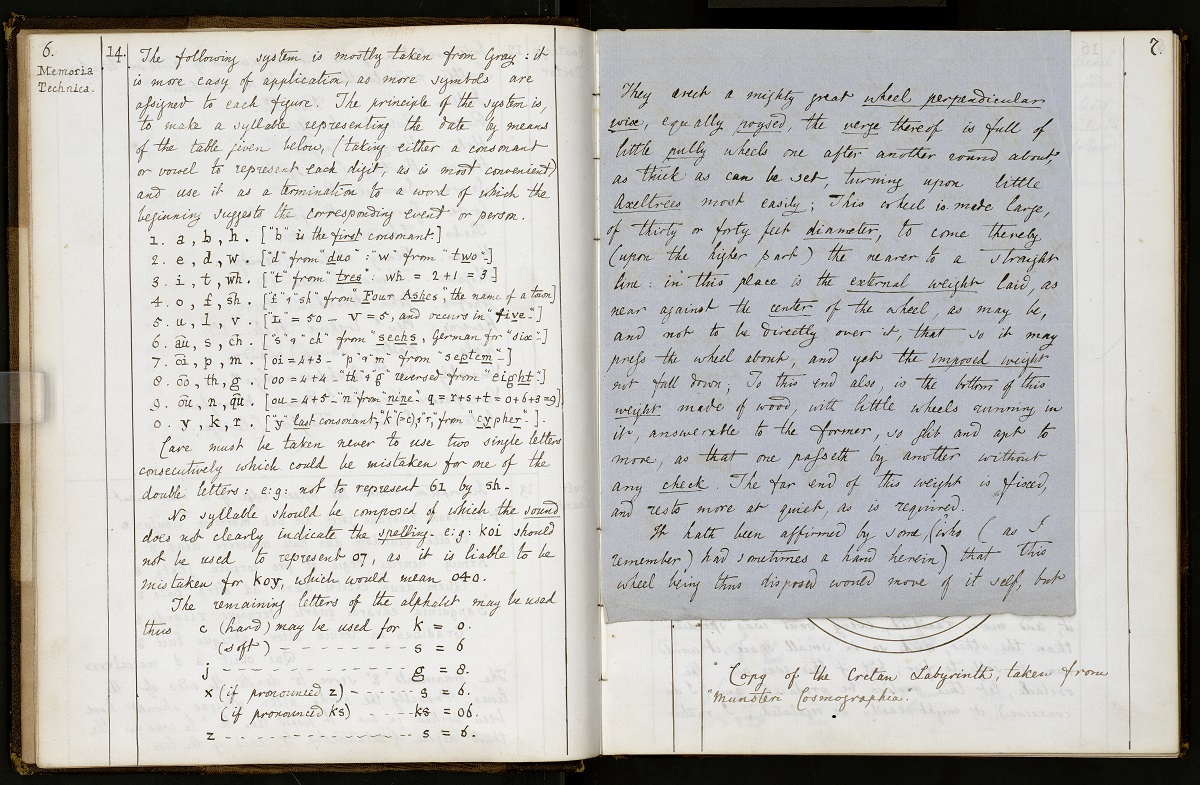 6.
Memoria
Technica.
14.
The following system is mostly taken from Gray: it
is more easy of application, as more symbols are
assigned to each figure. The principle of the system is,
to make a syllable representing the date by means
of the table given below, (taking either a consonant
or vowel to represent each digit, as is most convenient)
and use it as a termination to a word of which the
beginning suggests the corresponding event or person.
1. a, b, h. ["b" is the first consonant.]
2. e, d, w. ["d" from duo": "w" from "two"-]
3. i, t, wh. ["t" from "tres": wh = 2+1 = 3]
4. o, f, sh. ["f" & "sh" from "Four Ashes", the name of a town]
5. u, l, v. ["L" = 50 - V = 5, and occurs in "five"-]
6. au, s, ch. ["s" & "ch" from "sechs, German for "six"-]
7. oi, p, m. [oi = 4+3 - "p" & "m" from "septem"-]
8. oo, th, g. [oo = 4+4 - "th" & "g" reversed from "eight"]
9. ou, n, qu. [ou = 4+5 - "n" from "nine"- q = r+s+t = 0+6+3 = 9]
0. y, k, r. ["y" last consonant, "k" (=c), & "r", from "cypher"-].
Care must be taken never to use two single letters
consecutively which could be mistaken for one of the
double letters: e:g: not to represent 61 by sh-
No syllable should be composed of which the sound
does not clearly indicate the spelling- e:g: koi should
not be used to represent 07, as it is liable to be
mistaken for koy, which would mean 040.
The remaining letters of the alphabet may be used
thus c (hard) may be used for k = 0.
(soft) - - - - - - - - - - s = 6
j - - - - - - - - - - - - - g = 8.
x (if pronounced z) - - - - - s = 6.
(if pronounced ks) - - - - ks = 06.
z - - - - - - - - - - - - - s = 6.
7.
They erect a mighty great wheel perpendicular
wise, equally poysed, the verge thereof is full of
little pully wheels one after another round about
as thick as can be set, turning upon little
Axeltrees most easily; This wheel is made large,
of thirty or forty feet diameter, to come thereby
(upon the higher part) the nearer to a straight
line: in this place is the external weight laid, as
near against the center of the wheel, as may be,
and not to be directly over it, that so it may
press the wheel about, and yet the imposed weight
not fall down; To this end also, is the bottom of this
weight made of wood, with little wheels running in
it, answerable to the former, so glib and apt to
move, as that one passeth by another without
any check. The far end of this weight is fixed,
and rests more at quiet, as is required.
It hath been affirmed by some, (who (as I
remember) had sometimes a hand herein) that this
wheel being thus disposed would move of it self, but
"Copy of the Cretan Labyrinth, taken from
"Munsteri Cosmographia."